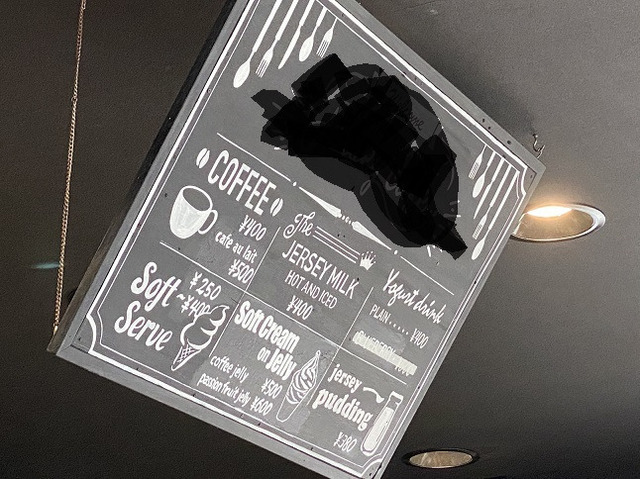 COFFEE
¥400
cafe au lait
¥500
The
JERSEY MILK
HOT AND ICED
¥400
Yogurt drink
PLAIN..... ¥400
Soft
Serve
¥250
~¥400
Soft Cream
on Jelly
coffee jelly ¥500
passion fruit jelly ¥600
jersey
pudding
¥380